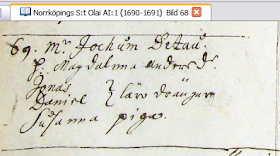 Norrköpings S:t Olai AI:1 (1690-1691) Bild 68
69. Mr Jochum Detau.
H. Magdalena Anders D.
Jonas
Daniel } lärodrängar
Susanna piga.